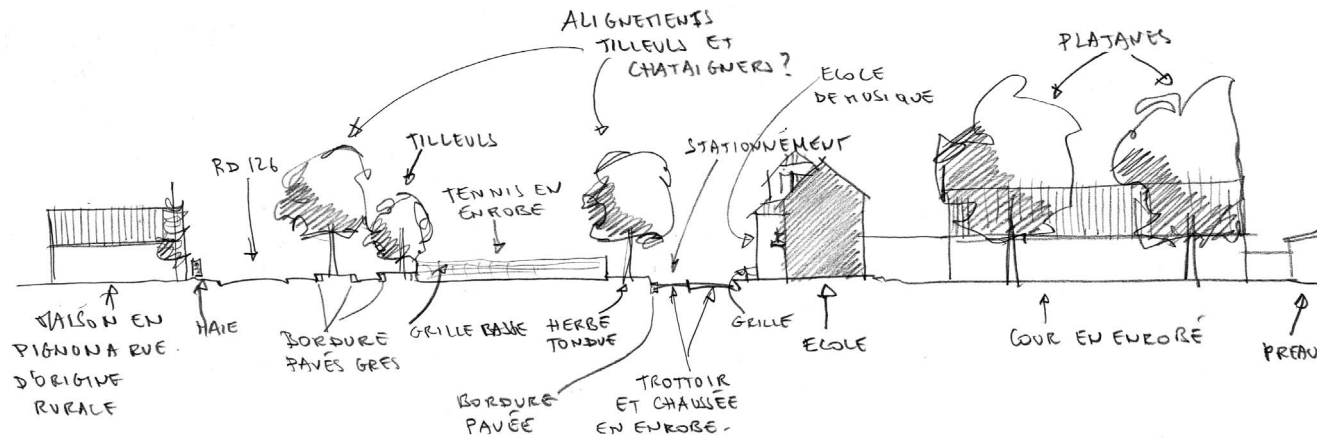 ALIGNEMENTS
TILLEULS ET
CHATAIGNERS?
PLATANES
ECOLE
DE MUSIQUE
STATIONNEMENT
TILLEULS
RD 126
TENNIS EN
ENROBE
MAISON EN
PIGNON A RUE.
D'ORIGINE
RURALE
HAIE
BORDURE
PAVÉS GRES
GRILLE BASSE
HERBE
TONDUE
BORDURE
PAVÉE
TROTTOIR
ET CHAUSSÉE
EN ENROBE.
GRILLE
ECOLE
COUR EN ENROBÉ
PREAU